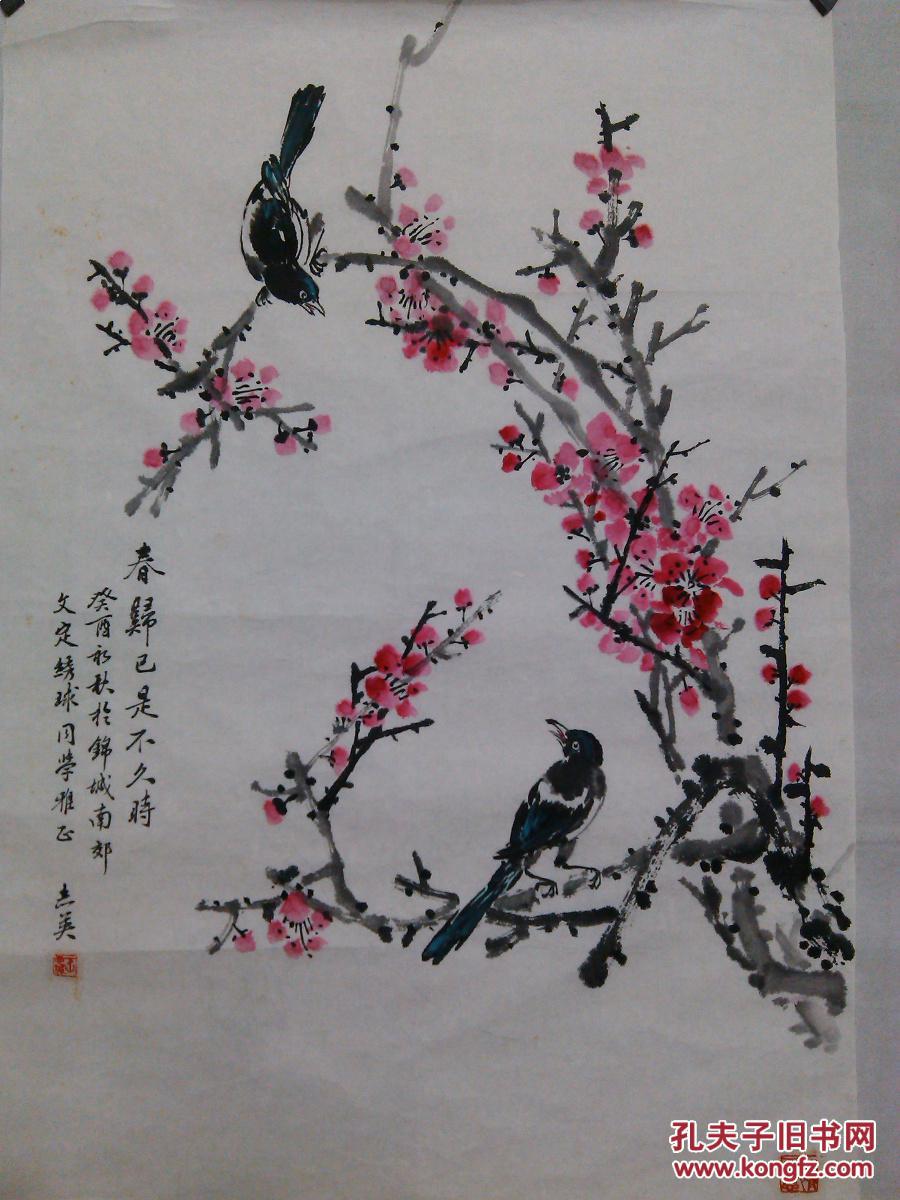 春歸已是不久時
癸酉初秋於錦城南郊
文定綉球同學雅正
志英
孔夫子旧书网
www.kongfz.com